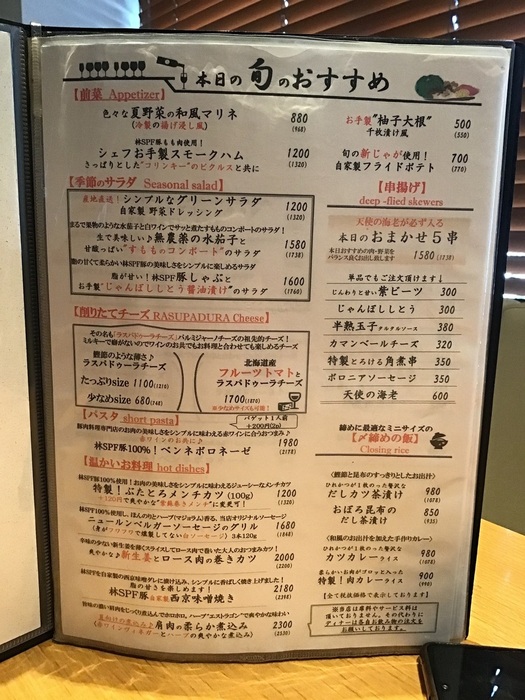 本日の旬のおすすめ
【前菜 Appetizer】
色々な夏野菜の和風マリネ 880
(冷製の揚げ浸し風) (968)
林SPF豚もも肉使用!
シェフお手製スモークハム 1200
さっぱりとした"コリンキー"のピクルスと共に (1320)
お手製"柚子大根" 500
千枚漬け風 (550)
旬の新じゃが使用! 700
自家製フライドポテト (770)
【季節のサラダ Seasonal salad】
産地直送!シンプルなグリーンサラダ 1200
自家製 野菜ドレッシング (1320)
まるで果物のような水茄子と白ワインでサッと煮たすもものコンポートのサラダ!
生で美味しい♪無農薬の水茄子と 1580
甘酸っぱい"すもものコンポート"のサラダ (1738)
脂の甘くて柔らかい林SPF豚の美味しさをシンプルに楽しめるサラダ
脂が甘い!林SPF豚しゃぶと 1600
お手製"じゃんぼししとう醤油漬け"のサラダ (1760)
【削りたてチーズ RASUPADURA Cheese】
その名も「ラスパドゥーラチーズ」パルミジャーノチーズの祖先的チーズ!
ミルキーで癖がないのでワインのお供でもお料理と合わせても楽しめるチーズ
鰹節のような薄さ♪
ラスパドゥーラチーズ
たっぷりsize 1100(1210)
少なめsize 680(748)
北海道産
フルーツトマトと
ラスパドゥーラチーズ
1700(1870)
※少なめサイズも可能!
【パスタ short pasta】
バゲット1人前
+200円(2p)
豚肉料理専門店のお肉の美味しさをシンプルに味わえる赤ワインに合うおつまみ♪
赤ワインのお供に♪ 1980
林SPF豚100%!ペンネボロネーゼ (2178)
【温かいお料理 hot dishes】
林SPF豚100%使用!お肉の美味しさをシンプルに味わえるジューシーなメンチカツ
特製!ぶたとろメンチカツ(100g) 1200
+120円で爽やかな"紫蘇巻きメンチ"に変更可! (1320)
林SPF豚100%使用し、ほんのりとハーブ(マジョラム)香る、当店オリジナルソーセージ
ニュールンベルガーソーセージのグリル 1680
(赤身がフワフワで燻製してない白ソーセージ) 3本120g (1848)
辛味の少ない新生姜を薄くスライスしてロース肉で巻いた大人のおつまみカツ!
爽やかな♪新生姜とロース肉の巻きカツ 2000
(2200)
林SPF豚を自家製の西京味噌ダレに漬け込み、シンプルに香ばしく焼き上げました!
脂の甘さを楽しめます! 2180
林SPF豚自家製西京味噌焼き (2398)
旨味の濃い肩肉をじっくり煮込んでホロホロ。ハーブ"エストラゴン"で爽やかな味わい
夏向けの煮込み♪肩肉の柔らか煮込み 2300
(赤ワインヴィネガーとハーブの爽やかな煮込み) (2530)
【串揚げ】
deep -flied skewers
天使の海老が必ず入る
本日のおまかせ5串
本日おすすめの肉・野菜を
バランス良くお出し致します 1580(1738)
単品でもご注文頂けます↓
じんわりと甘い紫ビーツ 300
じゃんぼししとう 300
半熟玉子タルタルソース 380
カマンベールチーズ 320
特製とろける角煮串 350
ボロニアソーセージ 350
天使の海老 600
締めに最適なミニサイズの
【〆締めの飯】
Closing rice
〈鰹節と昆布のすっきりとしたお出汁〉
ひれかつが1枚のった贅沢な 980
だしカツ茶漬け (1078)
おぼろ昆布の 850
だし茶漬け (935)
〈和風のお出汁を加えた手作りカレー〉
ひれかつが1枚のった贅沢な 980
カツカレーライス (1078)
柔らかいお肉がゴロッと入った 900
特製!肉カレーライス (990)
【全て税抜価格で表示しております】
※当店は席料やサービス料は
頂いておりません。その代わりに
ディナーは各自お飲み物の注文を
お願いしております。